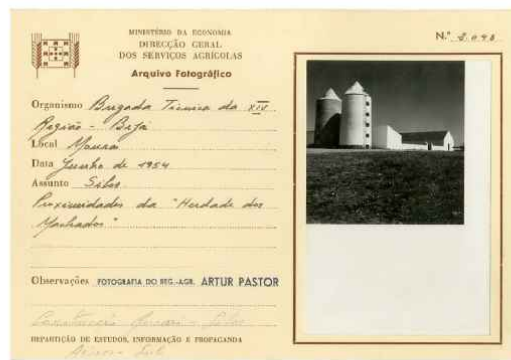 MINISTÉRIO DA ECONOMIA
DIRECÇÃO GERAL
DOS SERVIÇOS AGRÍCOLAS
Arquivo Fotográfico
N.º
Organismo Brigada Técnica da XIV
Região - Beja
Local Moura
Data Junho de 1954
Assunto Silos
Proximidades da "Herdade dos
Machados"
Observações FOTOGRAFIA DO REG.-AGR. ARTUR PASTOR
REPARTIÇÃO DE ESTUDOS, INFORMAÇÃO E PROPAGANDA